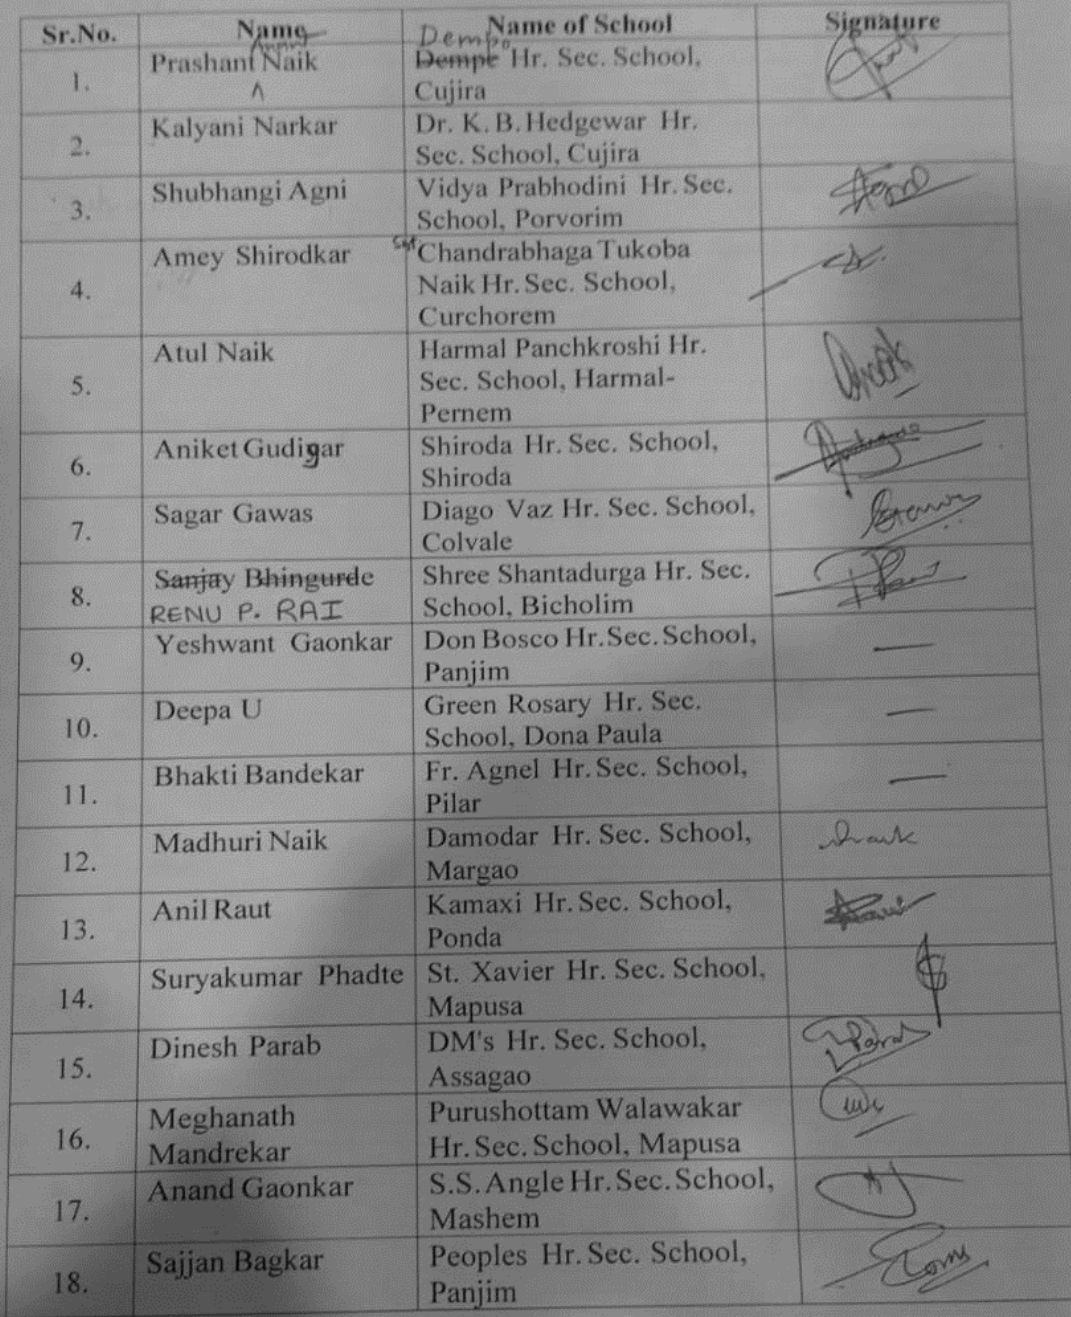 Sr.No. Name Name of School Signature
1. Prashant Naik Dempo Dempe Hr. Sec. School,
Cujira
2. Kalyani Narkar Dr. K. B. Hedgewar Hr.
Sec. School, Cujira
3. Shubhangi Agni Vidya Prabhodini Hr. Sec.
School, Porvorim
4. Amey Shirodkar Chandrabhaga Tukoba
Naik Hr. Sec. School,
Curchorem
5. Atul Naik Harmal Panchkroshi Hr.
Sec. School, Harmal-
Pernem
6. Aniket Gudigar Shiroda Hr. Sec. School,
Shiroda
7. Sagar Gawas Diago Vaz Hr. Sec. School,
Colvale
8. Sanjay Bhingurde Shree Shantadurga Hr. Sec.
RENU P. RAI School, Bicholim
9. Yeshwant Gaonkar Don Bosco Hr. Sec. School, —
Panjim
10. Deepa U Green Rosary Hr. Sec. —
School, Dona Paula
11. Bhakti Bandekar Fr. Agnel Hr. Sec. School, —
Pilar
12. Madhuri Naik Damodar Hr. Sec. School,
Margao
13. Anil Raut Kamaxi Hr. Sec. School,
Ponda
14. Suryakumar Phadte St. Xavier Hr. Sec. School,
Mapusa
15. Dinesh Parab DM's Hr. Sec. School,
Assagao
16. Meghanath Purushottam Walawakar
Mandrekar Hr. Sec. School, Mapusa
17. Anand Gaonkar S.S. Angle Hr. Sec. School,
Mashem
18. Sajjan Bagkar Peoples Hr. Sec. School,
Panjim